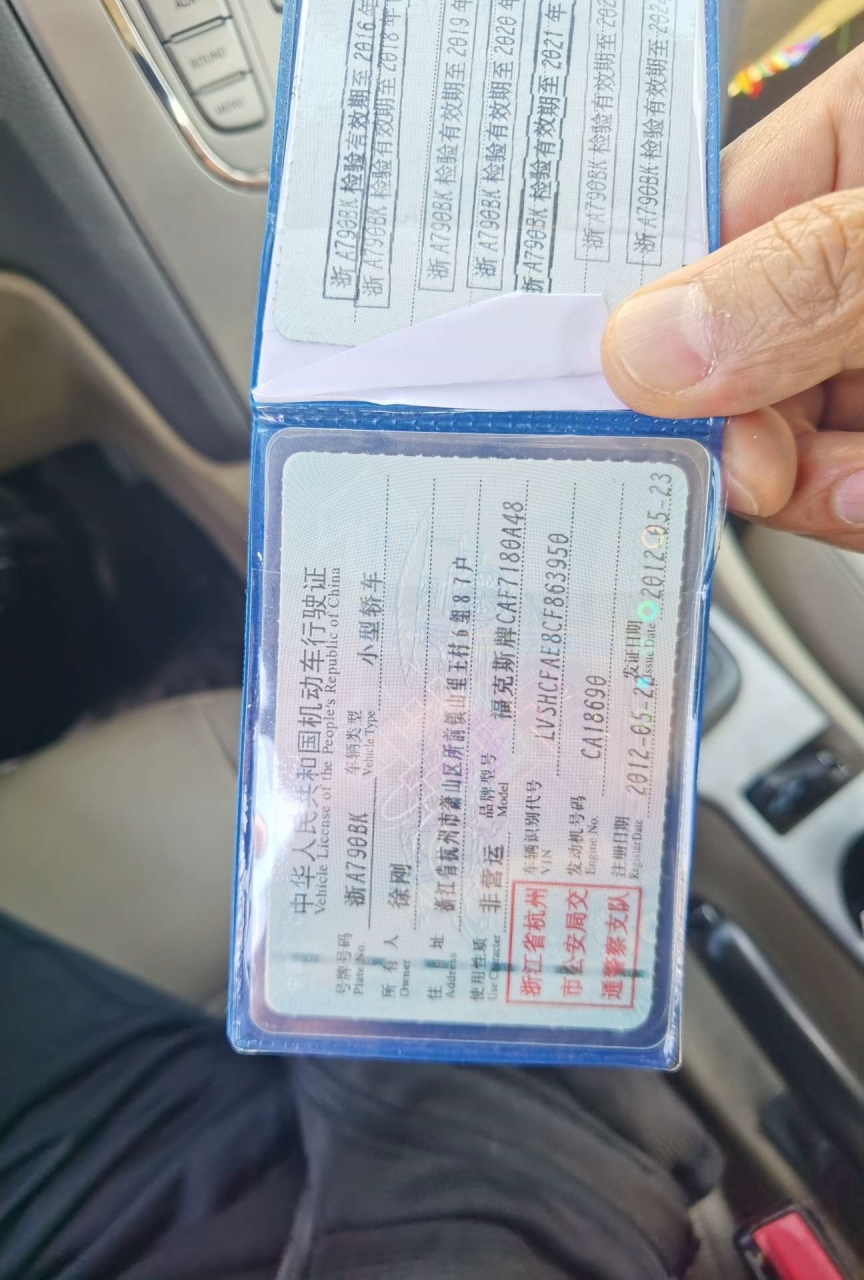 中华人民共和国机动车行驶证
Vehicle License of the People's Republic of China
号牌号码 浙A790BK 车辆类型 小型轿车
Plate No. Vehicle Type
所有人 徐刚
Owner
住址 浙江省杭州市萧山区所前镇山里王村6组87户
Address
使用性质 非营运 品牌型号 福克斯牌CAF7180A48
Use Character Model
浙江省杭州
市公安局交
通警察支队
车辆识别代号 LVSHCFAE8CF863950
VIN
发动机号码 CA18690
Engine No.
注册日期 2012-05-2 发证日期 2012-05-23
Register Date Issue Date
浙A790BK 检验有效期至 2016年
浙A790BK 检验有效期至 2018年
浙A790BK 检验有效期至 2019年
浙A790BK 检验有效期至 2020年
浙A790BK 检验有效期至 2021年
浙A790BK 检验有效期至 202
浙A790BK 检验有效期至 202
SOUND
MENU